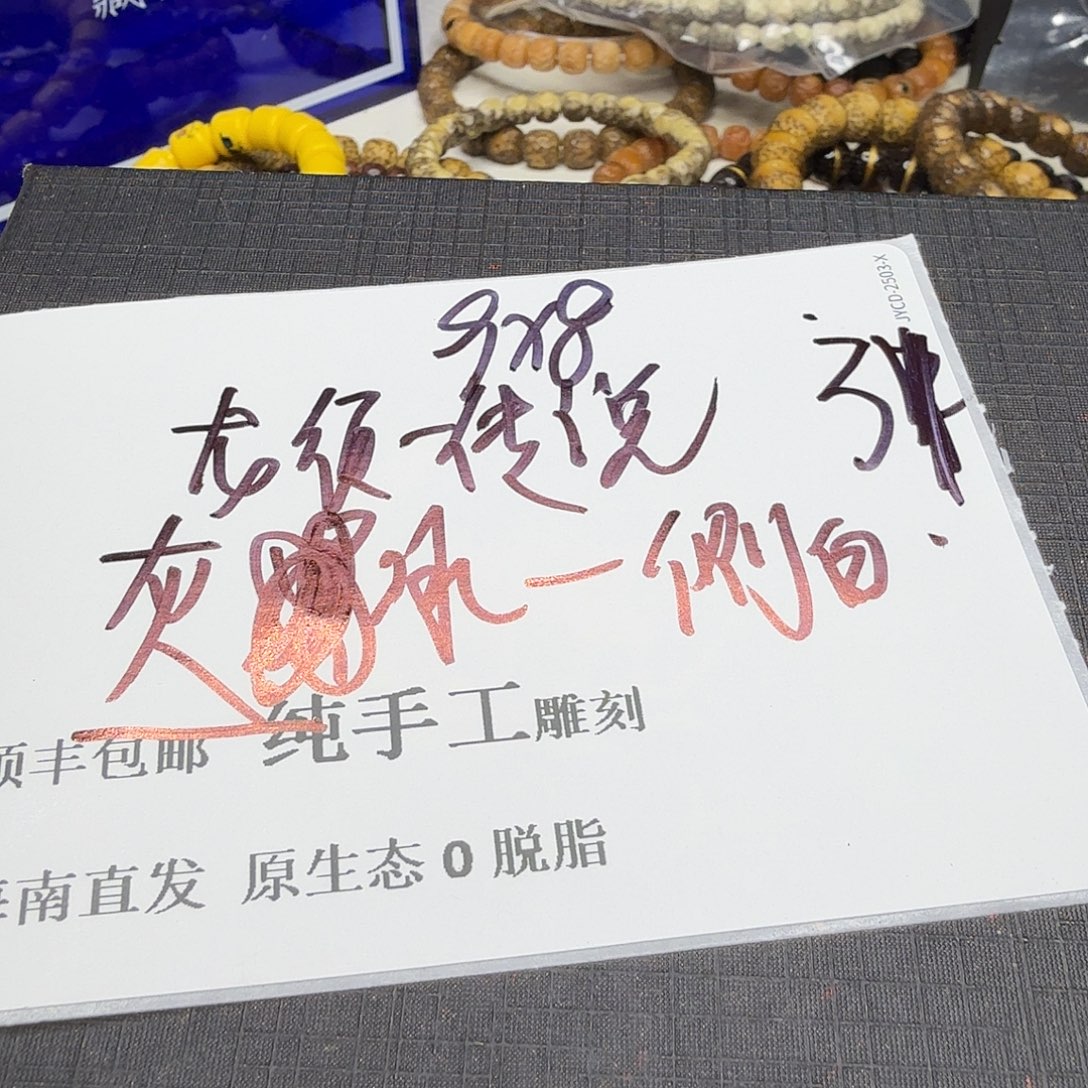 藏
JYCD-2503-X
9x8
龙须-传说
灰 一侧白.
顺丰包邮 纯手工雕刻
海南直发 原生态0脱脂